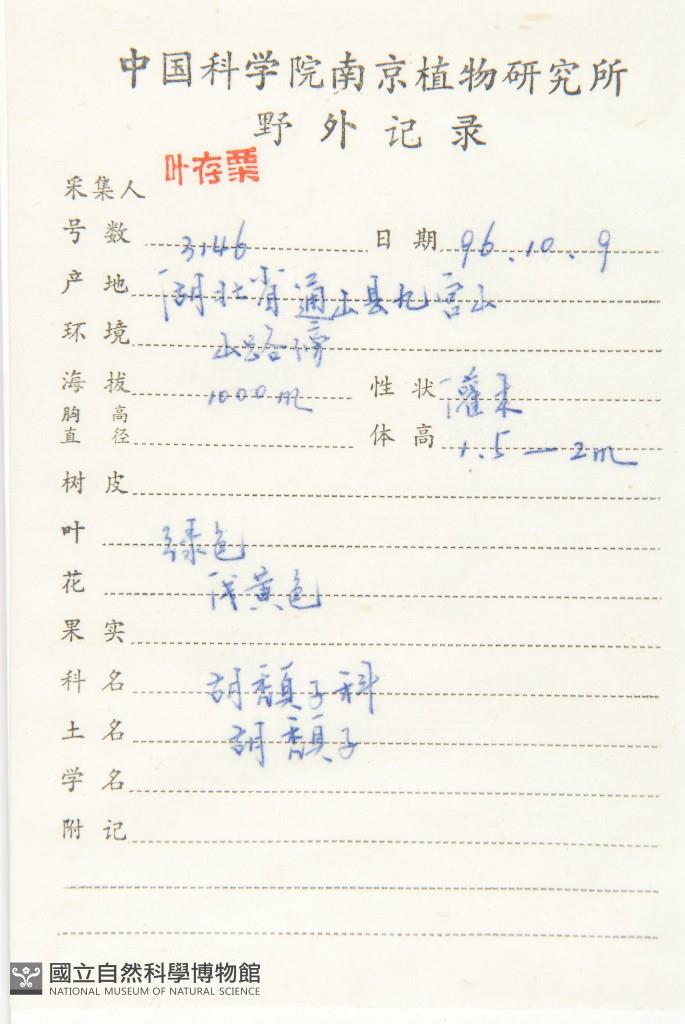 中国科学院南京植物研究所
野外记录
采集人 叶存粟
号数 3146 日期 96.10.9
产地 湖北省通山县九宫山
环境 山路旁
海拔 1000m 性状 灌木
胸高直径 体高 1.5—2m
树皮
叶 绿色
花 浅黄色
果实
科名 胡颓子科
土名 胡颓子
学名
附记
國立自然科學博物館
NATIONAL MUSEUM OF NATURAL SCIENCE